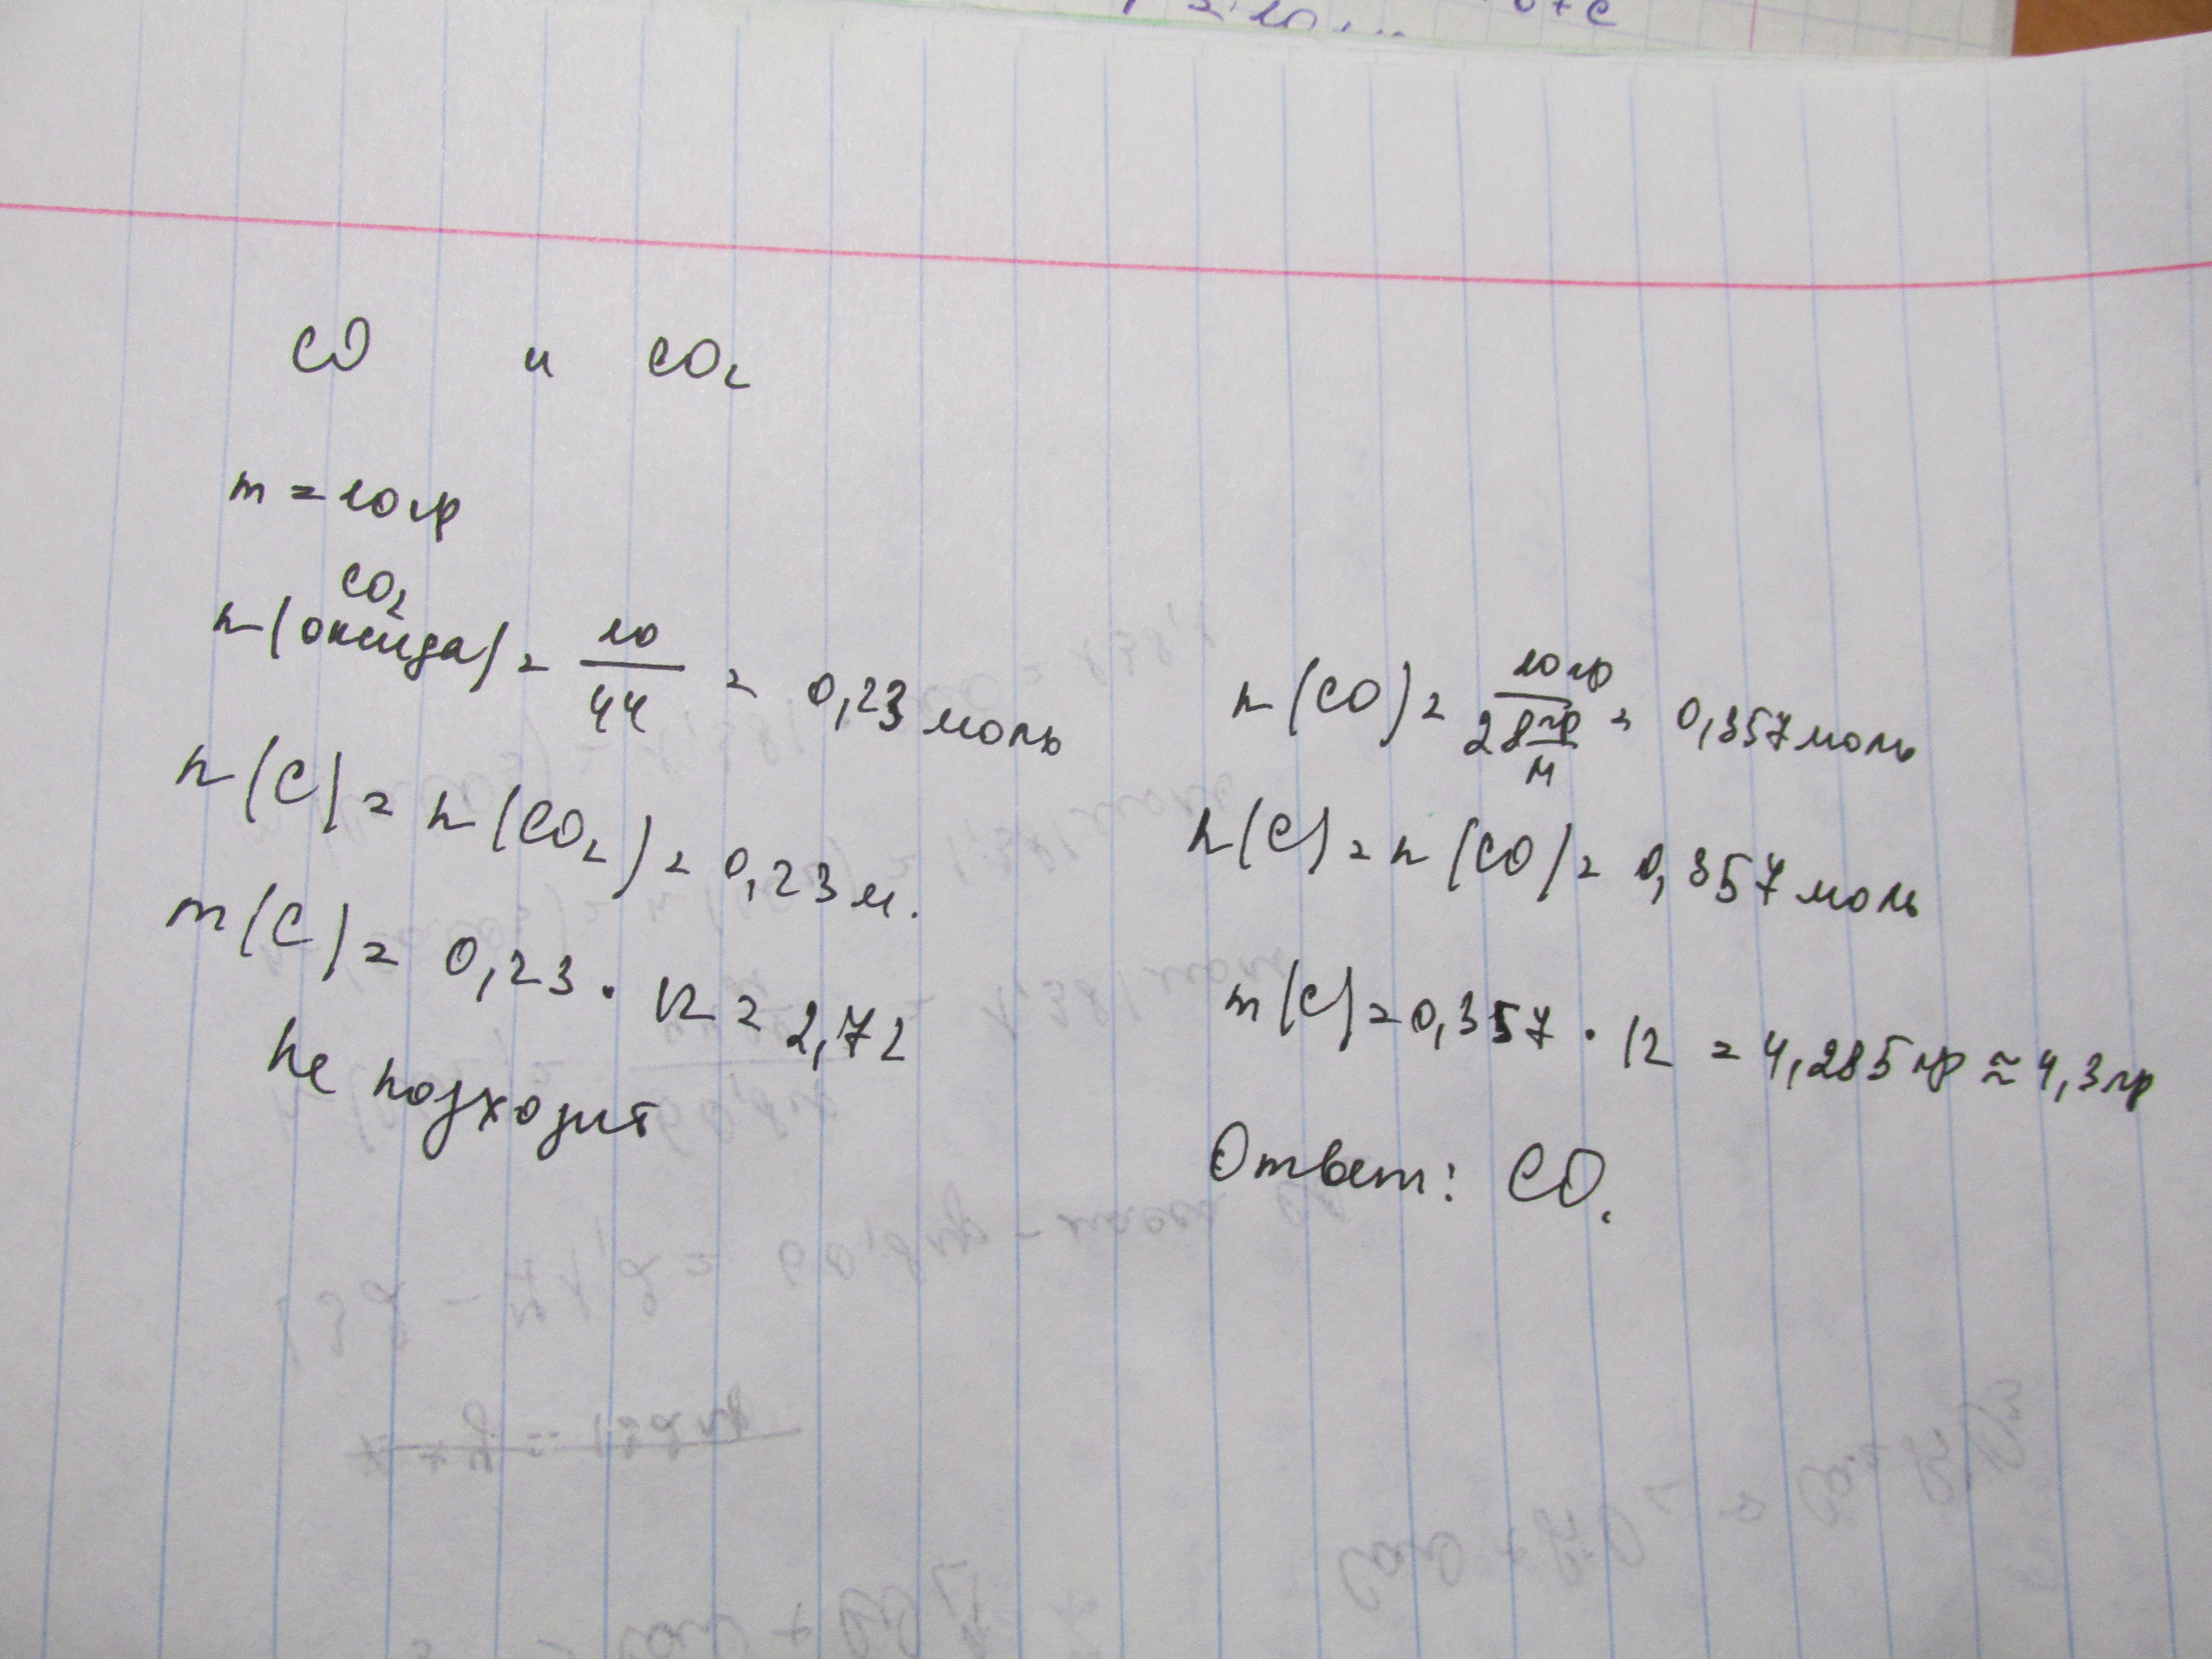 CO и CO₂
m = 10 гр
CO₂
n(оксида) = 10/44 = 0,23 моль
n(C) = n(CO₂) = 0,23 м.
m(C) = 0,23 · 12 = 2,72
не подходит
n(CO) = 10 гр / 28 гр/м = 0,357 моль
n(C) = n(CO) = 0,357 моль
m(C) = 0,357 · 12 = 4,285 гр ≈ 4,3 гр
Ответ: CO.